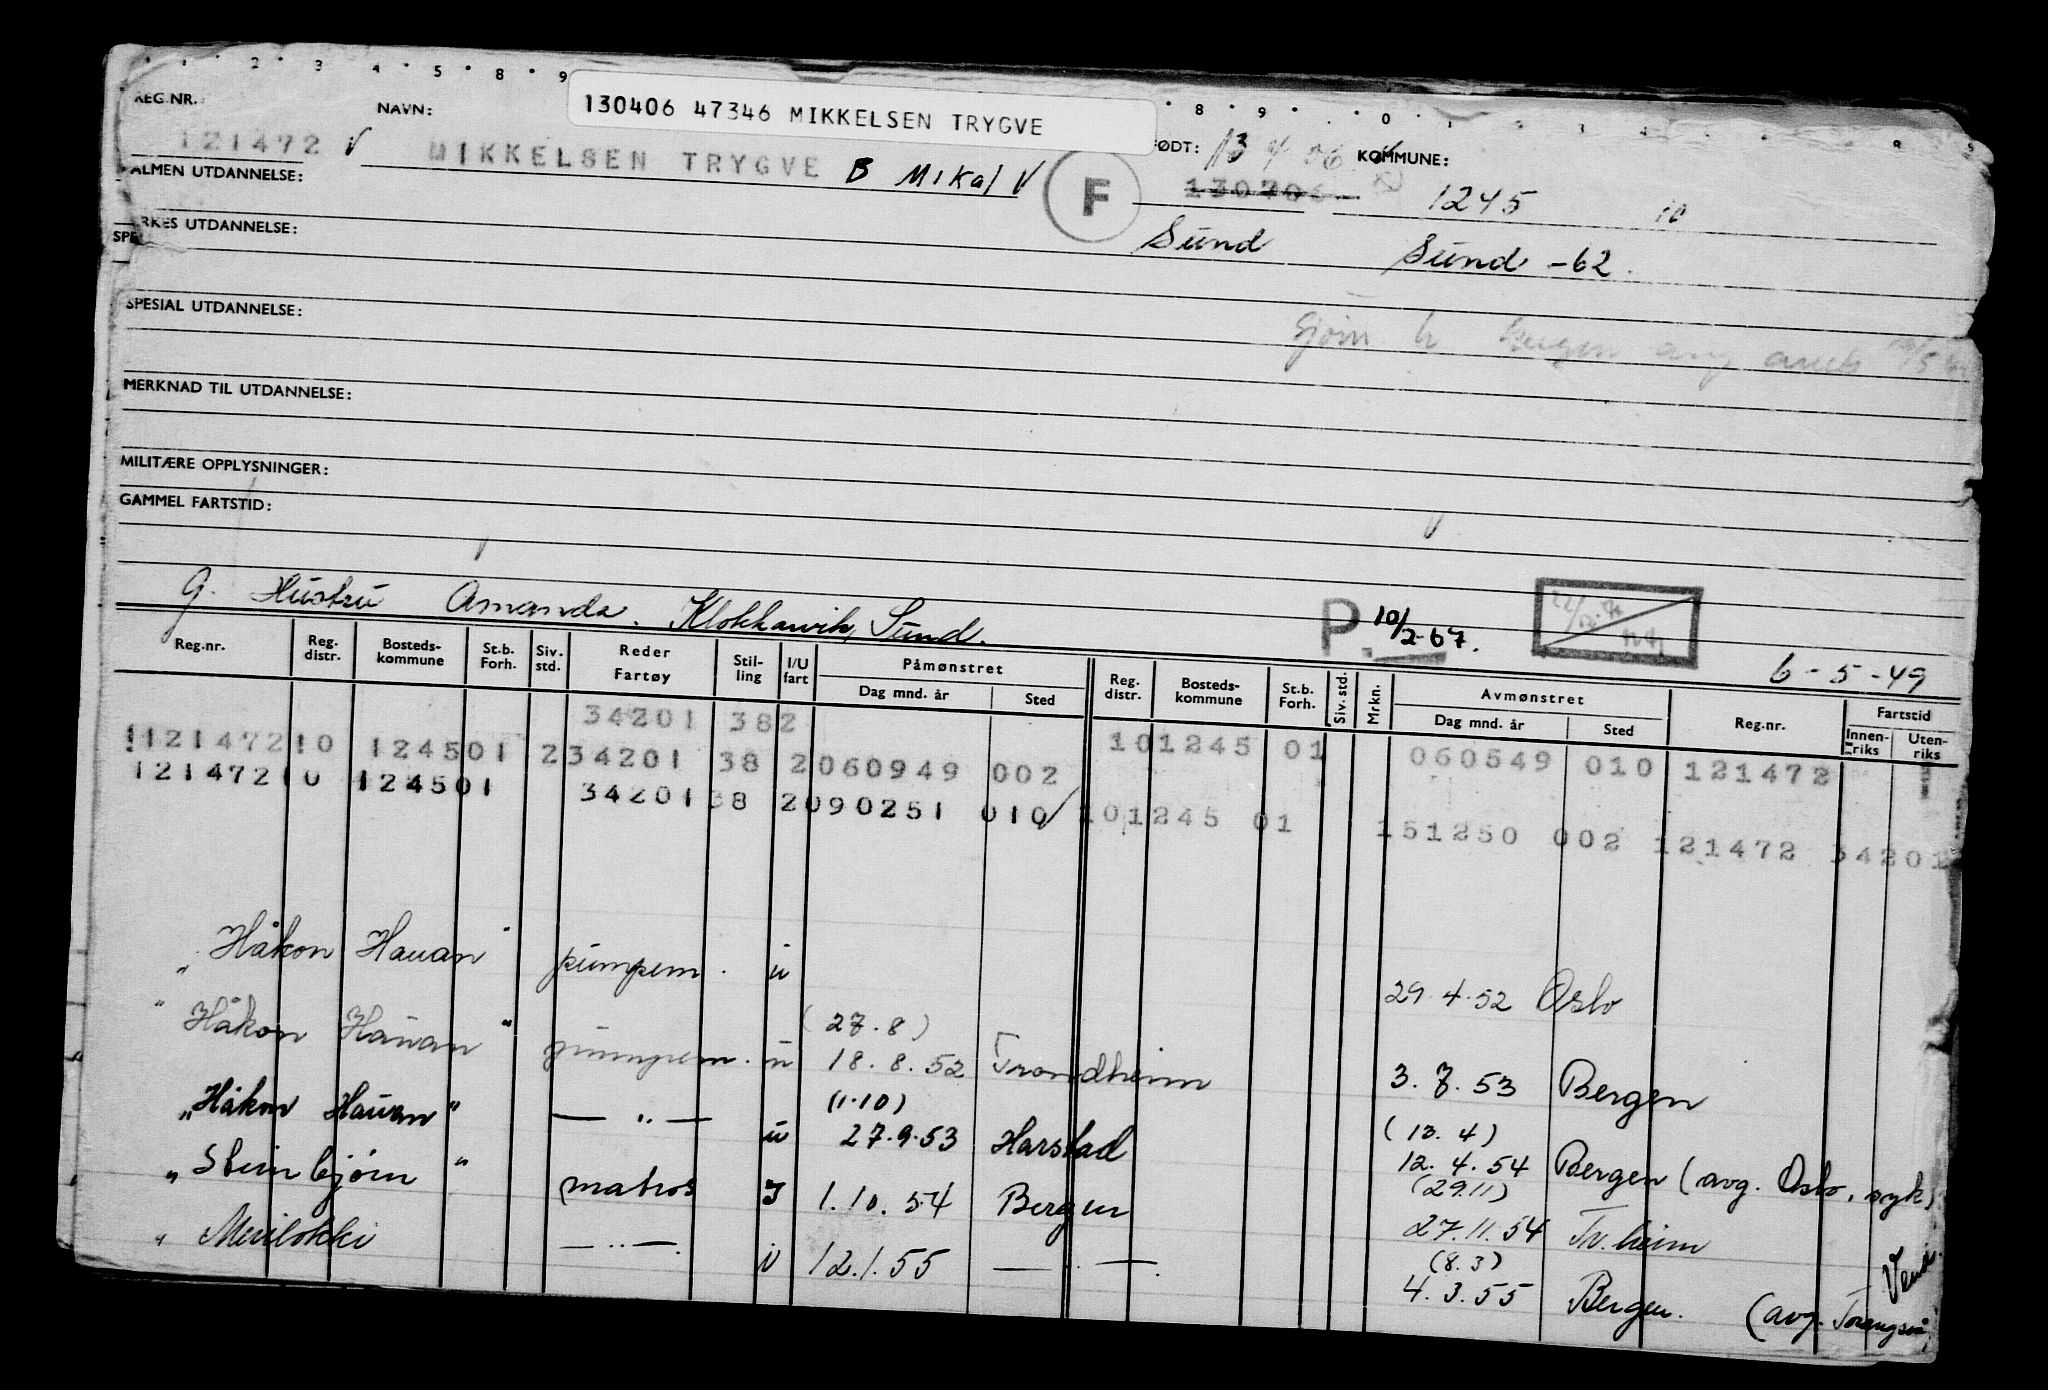 1 2 3 4 5 8 9 8 9 0
130406 47346 MIKKELSEN TRYGVE
REG.NR. NAVN: FØDT: 13 4 06 KOMMUNE:
121472 V MIKKELSEN TRYGVE B Mikal V F 1245 10
ALMEN UTDANNELSE:
Sund Sund -62.
YRKES UTDANNELSE:
SPE
SPESIAL UTDANNELSE:
Bergen ang
MERKNAD TIL UTDANNELSE:
MILITÆRE OPPLYSNINGER:
GAMMEL FARTSTID:
G. Hustru Amanda. Klokkarvik, Sund.
P. 10/2-67. 6-5-49
Reg.nr. Reg. distr. Bosteds-kommune St.b. Forh. Siv. std. Reder Fartøy Stil-ling I/U fart Påmønstret Dag mnd. år Sted Reg. distr. Bosteds-kommune St.b. Forh. Siv. std. Mrkn. Avmønstret Dag mnd. år Sted Reg.nr. Fartstid Innen-riks Uten-riks
34201 382 101245 01 060549 010 121472
121472 10 124501 2 34201 38 2 060949 002 101245 01 151250 002 121472 34201
121472 10 124501 34201 38 2 090251 010
"Håkon Hauan" pumpem. u 29.4.52 Oslo
(27.8)
"Håkon Hauan" pumpem. u 18.8.52 Trondheim 3.7.53 Bergen
(1.10) (13.4)
"Håkon Hauan" — " — u 27.9.53 Harstad 12.4.54 Bergen (avg. Oslo, syk)
(29.11)
"Steinbjørn" matros I 1.10.54 Bergen 27.11.54 Tr.heim
(8.3)
" Merilokki — " —. u 12.1.55 — " —. 4.3.55 Bergen. (avg.